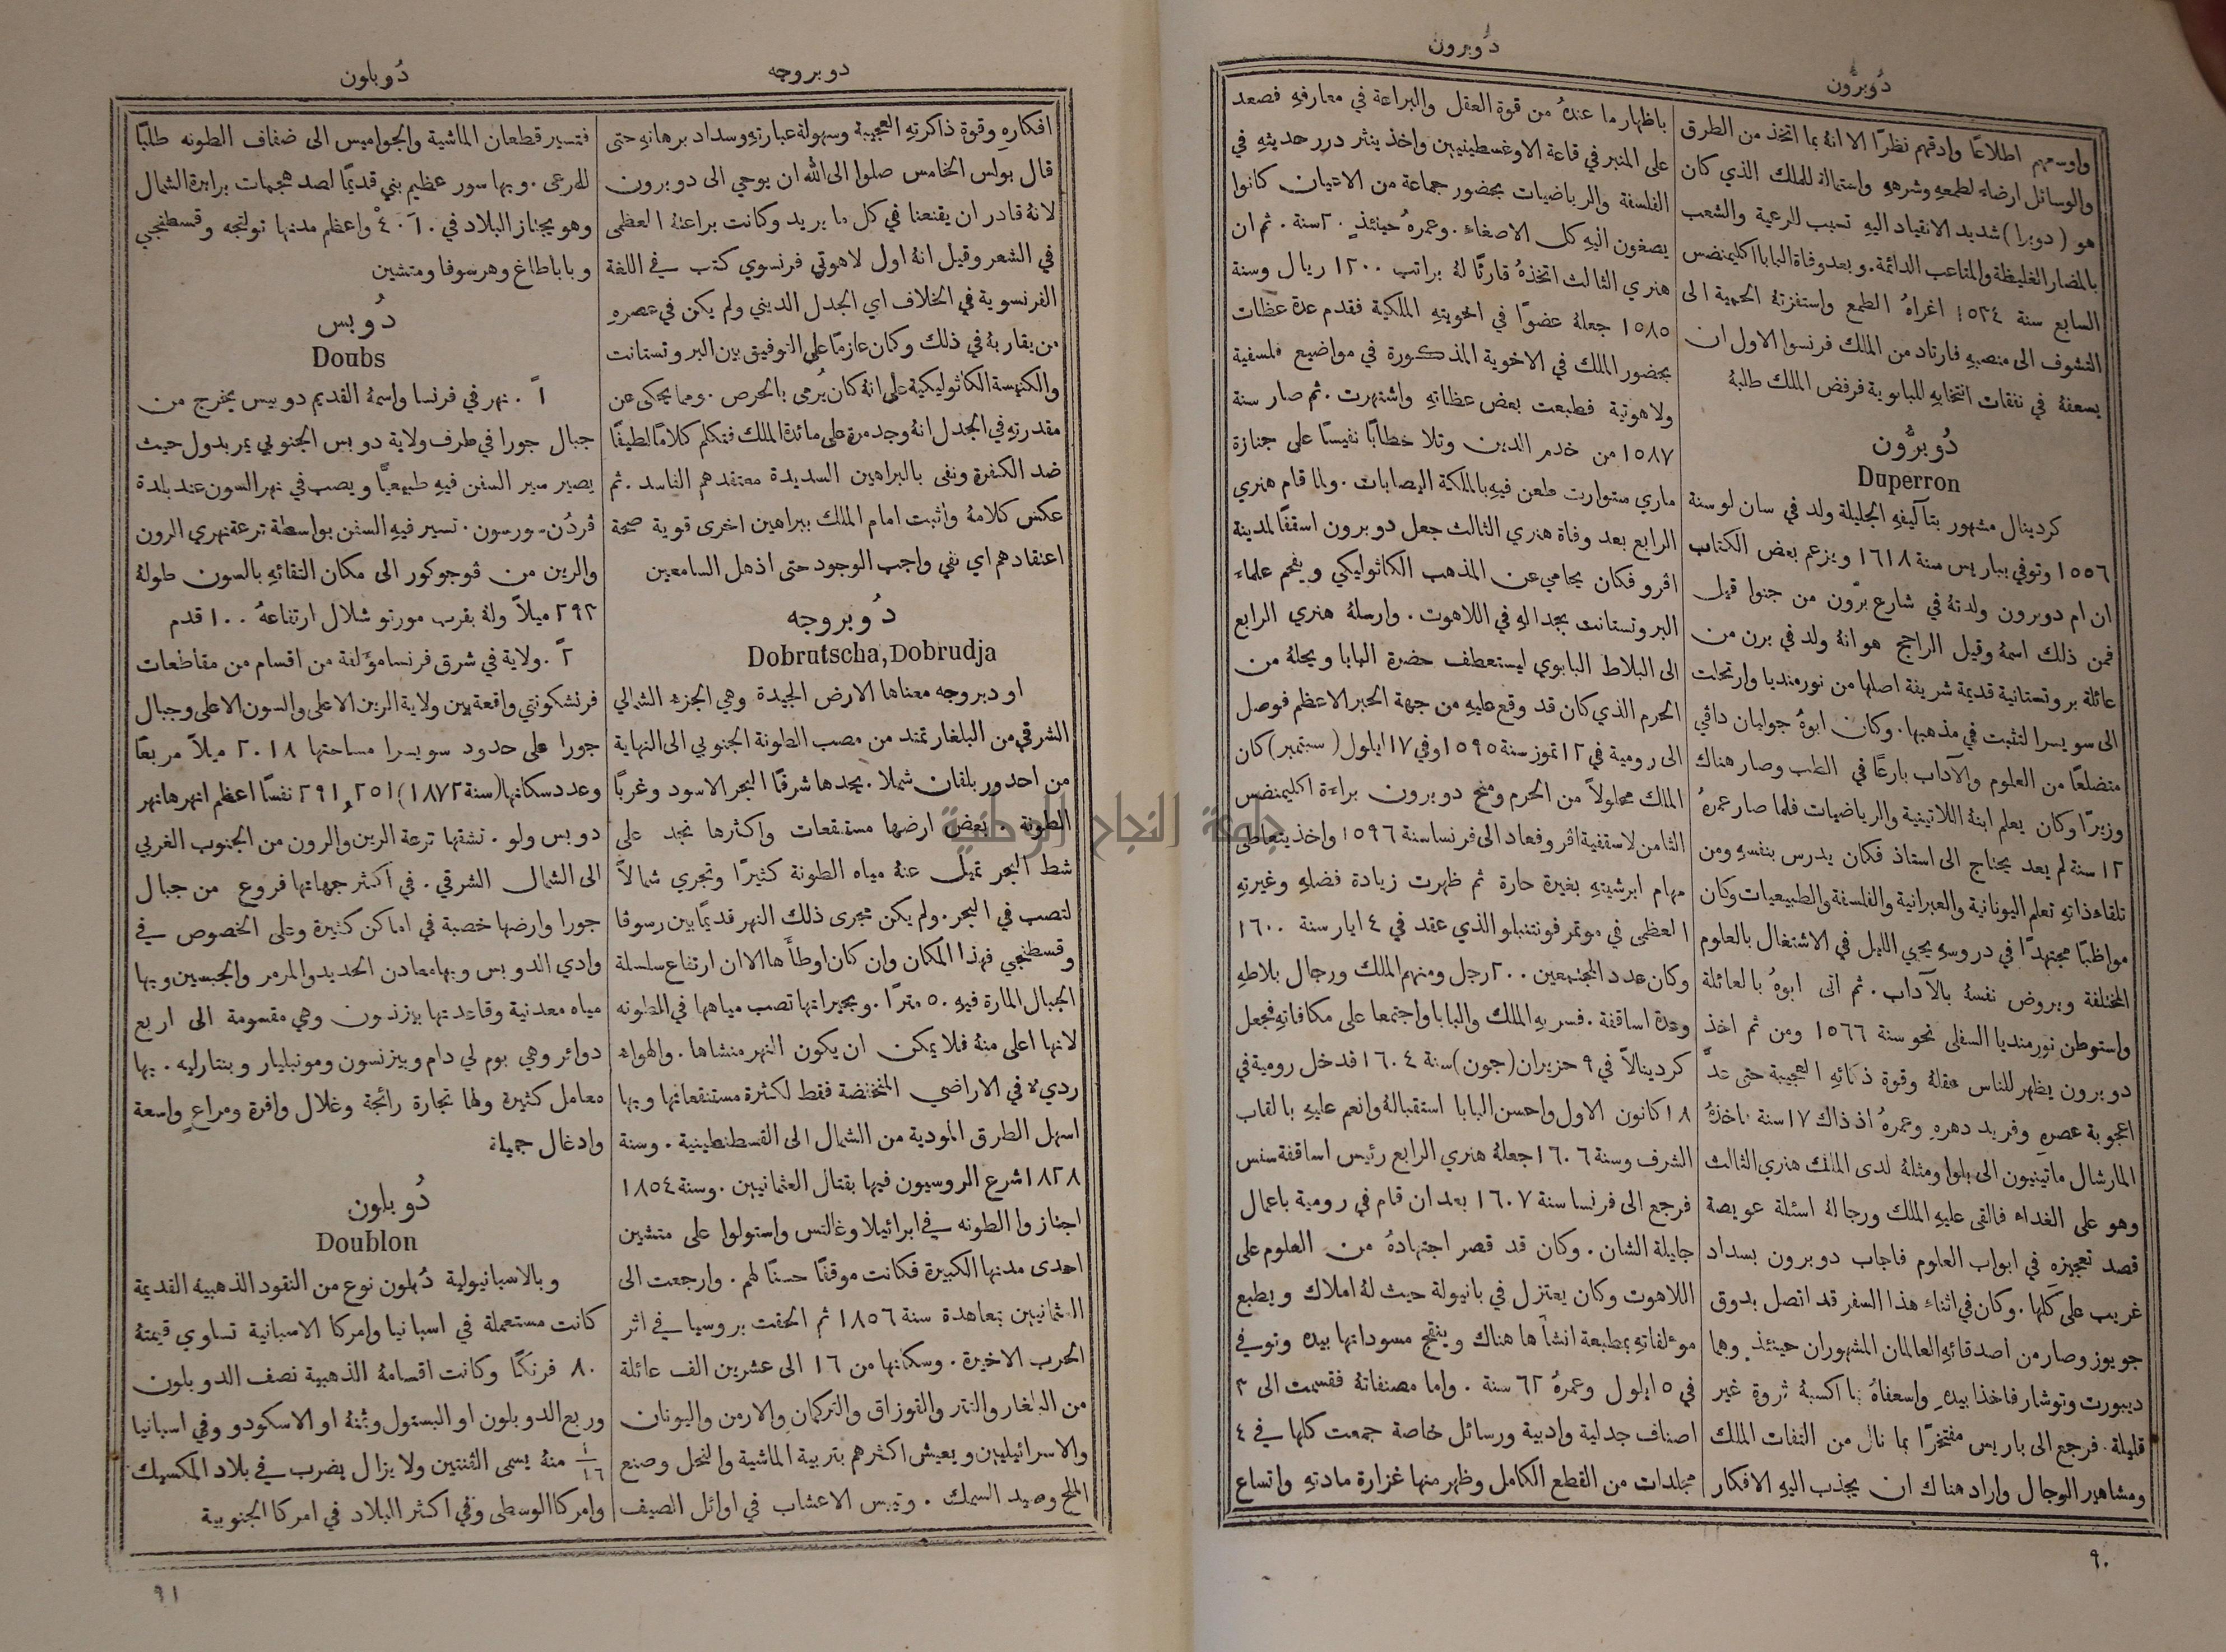 دُوبرُون
دُوبرون
واوسعهم اطلاعًا وادقهم نظرًا الا انهُ بما اتخذ من الطرق
والوسائل ارضاء لطمعهِ وشرههِ واستمالة للملك الذي كان
هو (دوبرا) شديد الانقياد اليهِ تسبب للرعية والشعب
بالمضار الغليظة والمتاعب الدائمة. وبعد وفاة البابا اكليمنضس
السابع سنة ١٥٣٤ اغراهُ الطمع واستفزتهُ الحمية الى
التشوف الى منصبهِ فارتاد من الملك فرنسوا الاول ان
يسعفهُ في نفقات انتخابهِ للبابوية فرفض الملك طلبهُ
دُوبرُّون
Duperron
كردينال مشهور بتآليفهِ الجليلة ولد في سان لو سنة
١٥٥٦ وتوفي بباريس سنة ١٦١٨ ويزعم بعض الكتاب
ان ام دوبرون ولدتهُ في شارع برّون من جنوا قيل
فمن ذلك اسمهُ وقيل الراجح هو انهُ ولد في برن من
عائلة بروتستانية قديمة شريفة اصلها من نورمنديا وارتحلت
الى سويسرا لتثبت في مذهبها. وكان ابوهُ جوليان داڤي
متضلعًا من العلوم والآداب بارعًا في الطب وصار هناك
وزيرًا وكان يعلم ابنهُ اللاتينية والرياضيات فلما صار عمرهُ
١٢ سنة لم يعد يحتاج الى استاذ فكان يدرس بنفسهِ ومن
تلقاء ذاتهِ تعلم اليونانية والعبرانية والفلسفة والطبيعيات وكان
مواظبًا مجتهدًا في دروسهِ يحيي الليل في الاشتغال بالعلوم
المختلفة ويروض نفسهُ بالآداب. ثم اتى ابوهُ بالعائلة
واستوطن نورمنديا السفلى نحو سنة ١٥٦٦ ومن ثم اخذ
دوبرون يظهر للناس عقلهُ وقوة ذكائهِ العجيبة حتى عدَّ
اعجوبة عصرهِ وفريد دهرهِ وعمرهُ اذ ذاك ١٧ سنة فاخذهُ
المارشال ماتينيون الى بلوا ومثلهُ لدى الملك هنري الثالث
وهو على الغداء فالقى عليهِ الملك ورجالهُ اسئلة عويصة
قصد تعجيزهِ في ابواب العلوم فاجاب دوبرون بسداد
غريب على كلها. وكان في اثناء هذا السفر قد اتصل بدوق
جويوز وصار من اصدقائهِ العالمان المشهوران حينئذٍ وهما
ديبورت وتوشار فاخذا بيدهِ واسعفاهُ بما اكسبهُ ثروة غير
قليلة. فرجع الى باريس مفتخرًا بما نال من التفات الملك
ومشاهير الرجال واراد هناك ان يجذب اليهِ الافكار
باظهار ما عندهُ من قوة العقل والبراعة في معارفهِ فصعد
على المنبر في قاعة الاوغسطينيين واخذ ينثر درر حديثهِ في
الفلسفة والرياضيات بحضور جماعة من الاعيان كانوا
يصغون اليهِ كل الاصغاء. وعمرهُ حينئذٍ ٢٠ سنة. ثم ان
هنري الثالث اتخذهُ قارئًا لهُ براتب ١٢٠٠ ريال وسنة
١٥٨٥ جعلهُ عضوًا في اخويتهِ الملكية فقدم عدة عظات
بحضور الملك في الاخوية المذكورة في مواضيع فلسفية
ولاهوتية فطبعت بعض عظاتهِ واشتهرت. ثم صار سنة
١٥٨٧ من خدم الدين وتلا خطابًا نفيسًا على جنازة
ماري ستوارت طعن فيهِ بالملكة اليصابات. ولما قام هنري
الرابع بعد وفاة هنري الثالث جعل دوبرون اسقفًا لمدينة
اڤرو فكان يحامي عن المذهب الكاثوليكي ويفحم علماء
البروتستانت بجدالهِ في اللاهوت. وارسلهُ هنري الرابع
الى البلاط البابوي ليستعطف حضرة البابا ويحلهُ من
الحرم الذي كان قد وقع عليهِ من جهة الحبر الاعظم فوصل
الى رومية في ١٢ تموز سنة ١٥٩٥ وفي ١٧ ايلول (سبتمبر) كان
الملك محلولاً من الحرم ومنح دوبرون براءة اكليمنضس
الثامن لاسقفية اڤرو فعاد الى فرنسا سنة ١٥٩٦ واخذ يتعاطى
مهام ابرشيتهِ بغيرة حارة ثم ظهرت زيادة فضلهِ وغيرتهِ
العظمى في موتمر فونتنبلو الذي عقد في ٤ ايار سنة ١٦٠٠
وكان عدد المجتمعين ٢٠٠ رجل ومنهم الملك ورجال بلاطهِ
وعدة اساقفة. فسر بهِ الملك والبابا واجتمعا على مكافاتهِ فجعل
كردينالاً في ٩ حزيران (جون) سنة ١٦٠٤ فدخل رومية في
١٨ كانون الاول واحسن البابا استقبالهُ وانعم عليهِ بالقاب
الشرف وسنة ١٦٠٦ جعلهُ هنري الرابع رئيس اساقفة سنس
فرجع الى فرنسا سنة ١٦٠٧ بعد ان قام في رومية باعمال
جليلة الشان. وكان قد قصر اجتهادهُ من العلوم على
اللاهوت وكان يعتزل في بانيولة حيث لهُ املاك ويطبع
مولفاتهِ بمطبعة انشأها هناك وينقح مسوداتها بيده وتوفي
في ٥ ايلول وعمرهُ ٦٢ سنة. واما مصنفاتهُ فقسمت الى ٣
اصناف جدلية وادبية ورسائل خاصة جمعت كلها في ٤
مجلدات من القطع الكامل وظهر منها غزارة مادتهِ واتساع
٩٠
دوبروجه
دُوبلون
افكارهِ وقوة ذاكرتهِ العجيبة وسهولة عبارتهِ وسداد برهانهِ حتى
قال بولس الخامس صلوا الى الله ان يوحي الى دوبرون
لانهُ قادر ان يقنعنا في كل ما يريد وكانت براعتهُ العظمى
في الشعر وقيل انهُ اول لاهوتي فرنسوي كتب في اللغة
الفرنسوية في الخلاف اي الجدل الديني ولم يكن في عصرهِ
من يقاربهُ في ذلك وكان عازمًا على التوفيق بين البروتستانت
والكنيسة الكاثوليكية على انهُ كان يُرمى بالحرص. ومما يحكى عن
مقدرتهِ في الجدل انهُ وجد مرة على مائدة الملك فتكلم كلامًا لطيفًا
ضد الكفرة ونفى بالبراهين السديدة معتقدهم الفاسد. ثم
عكس كلامهُ واثبت امام الملك ببراهين اخرى قوية صحة
اعتقادهم اي نفي واجب الوجود حتى اذهل السامعين
دُوبروجه
Dobrutscha, Dobrudja
او دبروجه معناها الارض الجيدة وهي الجزء الشمالي
الشرقي من البلغار تمتد من مصب الطونة الجنوبي الى النهاية
من احدور بلقان شملا. يحدها شرقًا البحر الاسود وغربًا
الطونة. بعض ارضها مستنقعات واكثرها نجد على
شط البحر تميل عنهُ مياه الطونة كثيرًا وتجري شمالاً
لتصب في البحر. ولم يكن مجرى ذلك النهر قديمًا بين رسوڤا
وقسطنجي فهذا المكان وان كان اوطأها الا ان ارتفاع سلسلة
الجبال المارة فيهِ ٥٠ مترًا. وبحيراتها تصب مياهها في الطونه
لانها اعلى منهُ فلا يمكن ان يكون النهر منشاها. والهواء
رديء في الاراضي المنخفضة فقط لكثرة مستنقعاتها وبها
اسهل الطرق المودية من الشمال الى القسطنطينية. وسنة
١٨٢٨ شرع الروسيون فيها بقتال العثمانيين. وسنة ١٨٥٤
اجتازوا الطونه في ابرائيلا وغالتس واستولوا على متشين
احدى مدنها الكبيرة فكانت موقفًا حسنًا لهم. وارجعت الى
العثمانيين بمعاهدة سنة ١٨٥٦ ثم الحقت بروسيا في اثر
الحرب الاخيرة. وسكانها من ١٦ الى عشرين الف عائلة
من البلغار والتتر والقوزاق والتركمان والارمن واليونان
والاسرائيليين ويعيش اكثرهم بتربية الماشية والنحل وصنع
الملح وصيد السمك. وتيبس الاعشاب في اوائل الصيف
فتسير قطعان الماشية والجواميس الى ضفاف الطونه طلبًا
للرعى. وبها سور عظيم بني قديمًا لصد هجمات برابرة الشمال
وهو يجتاز البلاد في
واعظم مدنها تولتجه وقسطنجي
وباباطاغ وهرسوفا ومتشين
دُوبس
Doubs
اً. نهر في فرنسا واسمهُ القديم دوبيس يخرج من
جبال جورا في طرف ولاية دوبس الجنوبي يمر بدول حيث
يصير سير السفن فيهِ طبيعيًّا ويصب في نهر السون عند بلدة
ڤردُن-سورسون. تسير فيهِ السفن بواسطة ترعة نهري الرون
والرين من ڤوجوكور الى مكان التقائهِ بالسون طولهُ
٢٩٢ ميلاً ولهُ بقرب مورتو شلال ارتفاعهُ ١٠٠ قدم
٢ً. ولاية في شرق فرنسا مؤلفة من اقسام من مقاطعات
فرنشكونتي واقعة بين ولاية الرين الاعلى والسون الاعلى وجبال
جورا على حدود سويسرا مساحتها ٢٠١٨ ميلاً مربعًا
وعدد سكانها (سنة ١٨٧٢) ٢٩١,٢٥١ نفسًا اعظم انهرها نهر
دوبس ولو. تشقها ترعة الرين والرون من الجنوب الغربي
الى الشمال الشرقي. في اكثر جهاتها فروع من جبال
جورا وارضها خصبة في اماكن كثيرة وعلى الخصوص في
وادي الدوبس وبها معادن الحديد والمرمر والجبسين وبها
مياه معدنية وقاعدتها بيزنسون وهي مقسومة الى اربع
دوائر وهي بوم لي دام وبيزنسون ومونبليار وبنتارليه. بها
معامل كثيرة ولها تجارة رائجة وغلال وافرة ومراعٍ واسعة
وادغال جميلة
دُوبلون
Doublon
وبالاسبانيولية دُبلون نوع من النقود الذهبية القديمة
كانت مستعملة في اسبانيا وامركا الاسبانية تساوي قيمتهُ
٨٠ فرنكًا وكانت اقسامهُ الذهبية نصف الدوبلون
وربع الدوبلون او البستول وثمنهُ او الاسكودو وفي اسبانيا
١/١٦ منهُ يسمى الڤنتين ولا يزال يضرب في بلاد المكسيك
وامركا الوسطى وفي اكثر البلاد في امركا الجنوبية
٩١
جامعة النجاح الوطنية